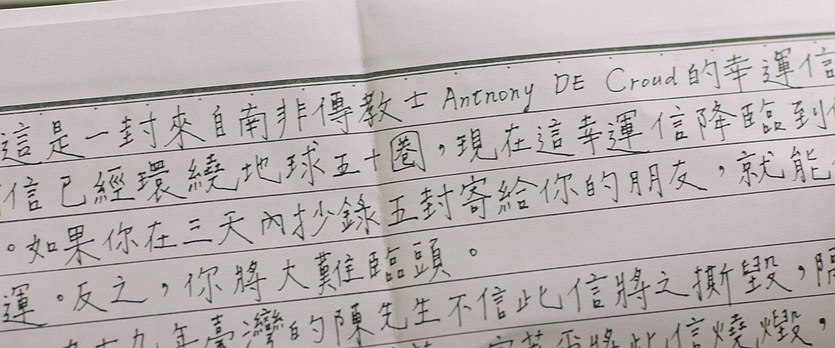 這是一封來自南非傳教士Antnony DE Croud的幸運信
信已經環繞地球五十圈,現在這幸運信降臨到
。如果你在三天內抄錄五封寄給你的朋友,就能
運。反之,你將大難臨頭。
九十九年臺灣的陳先生不信此信將之撕毀,隔
將此信燒燬,